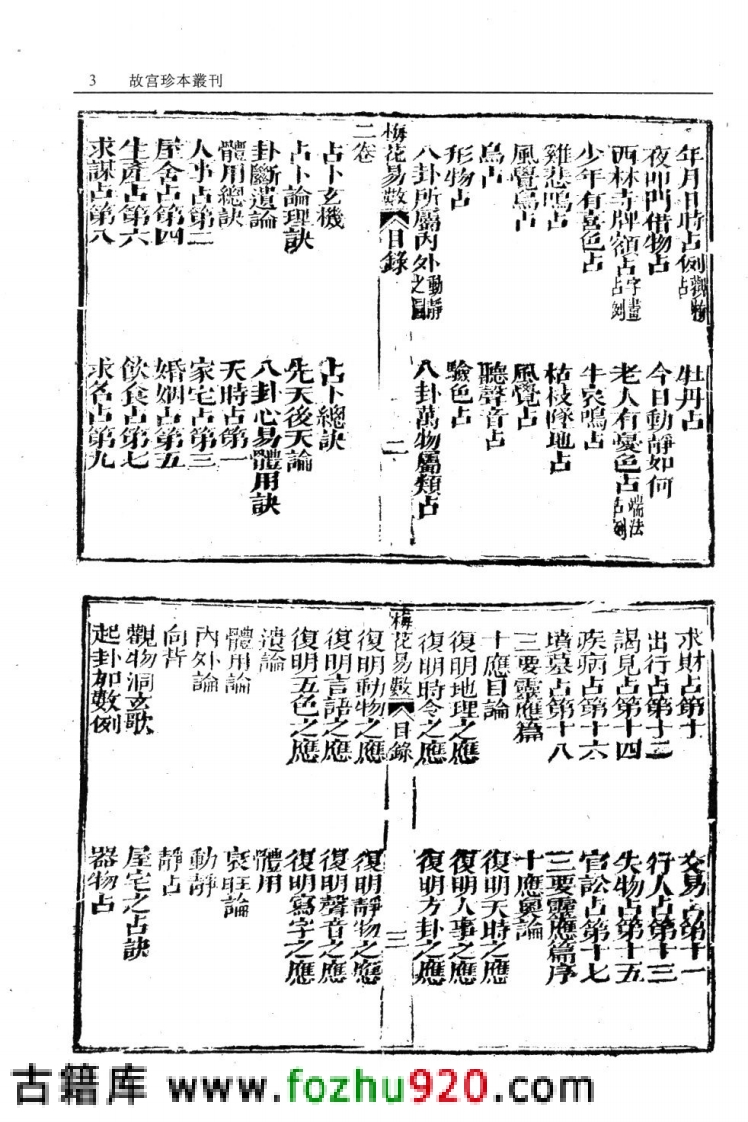 3 故宮珍本叢刊
年月日時占例觀梅占 牡丹占
夜叩門借物占 今日動靜如何
西林寺牌額占字畫占例 老人有憂色占端法占例
少年有喜色占 牛哀鳴占
雞悲鳴占 枯枝墜地占
風覺鳥占 風覺占
鳥占 聽聲音占
形物占 驗色占
八卦所屬內外動靜之圖 八卦萬物屬類占
梅花易數 目錄 二
二卷
占卜玄機 占卜總訣
占卜論理訣 先天後天論
卦斷遺論 八卦心易體用訣
體用總訣 天時占第一
人事占第二 家宅占第三
屋舍占第四 婚姻占第五
生產占第六 飲食占第七
求謀占第八 求名占第九
求財占第十 交易占第十一
出行占第十二 行人占第十三
謁見占第十四 失物占第十五
疾病占第十六 官訟占第十七
墳墓占第十八 三要靈應篇序
三要靈應篇 十應奧論
十應目論 復明天時之應
復明地理之應 復明人事之應
復明時令之應 復明方卦之應
梅花易數 目錄 三
復明動物之應 復明靜物之應
復明言語之應 復明聲音之應
復明五色之應 復明寫字之應
遺論 體用
體用論 衰旺論
內外論 動靜
向背 靜占
觀物洞玄歌 屋宅之占訣
起卦加數例 器物占
古籍库 www.fozhu920.com